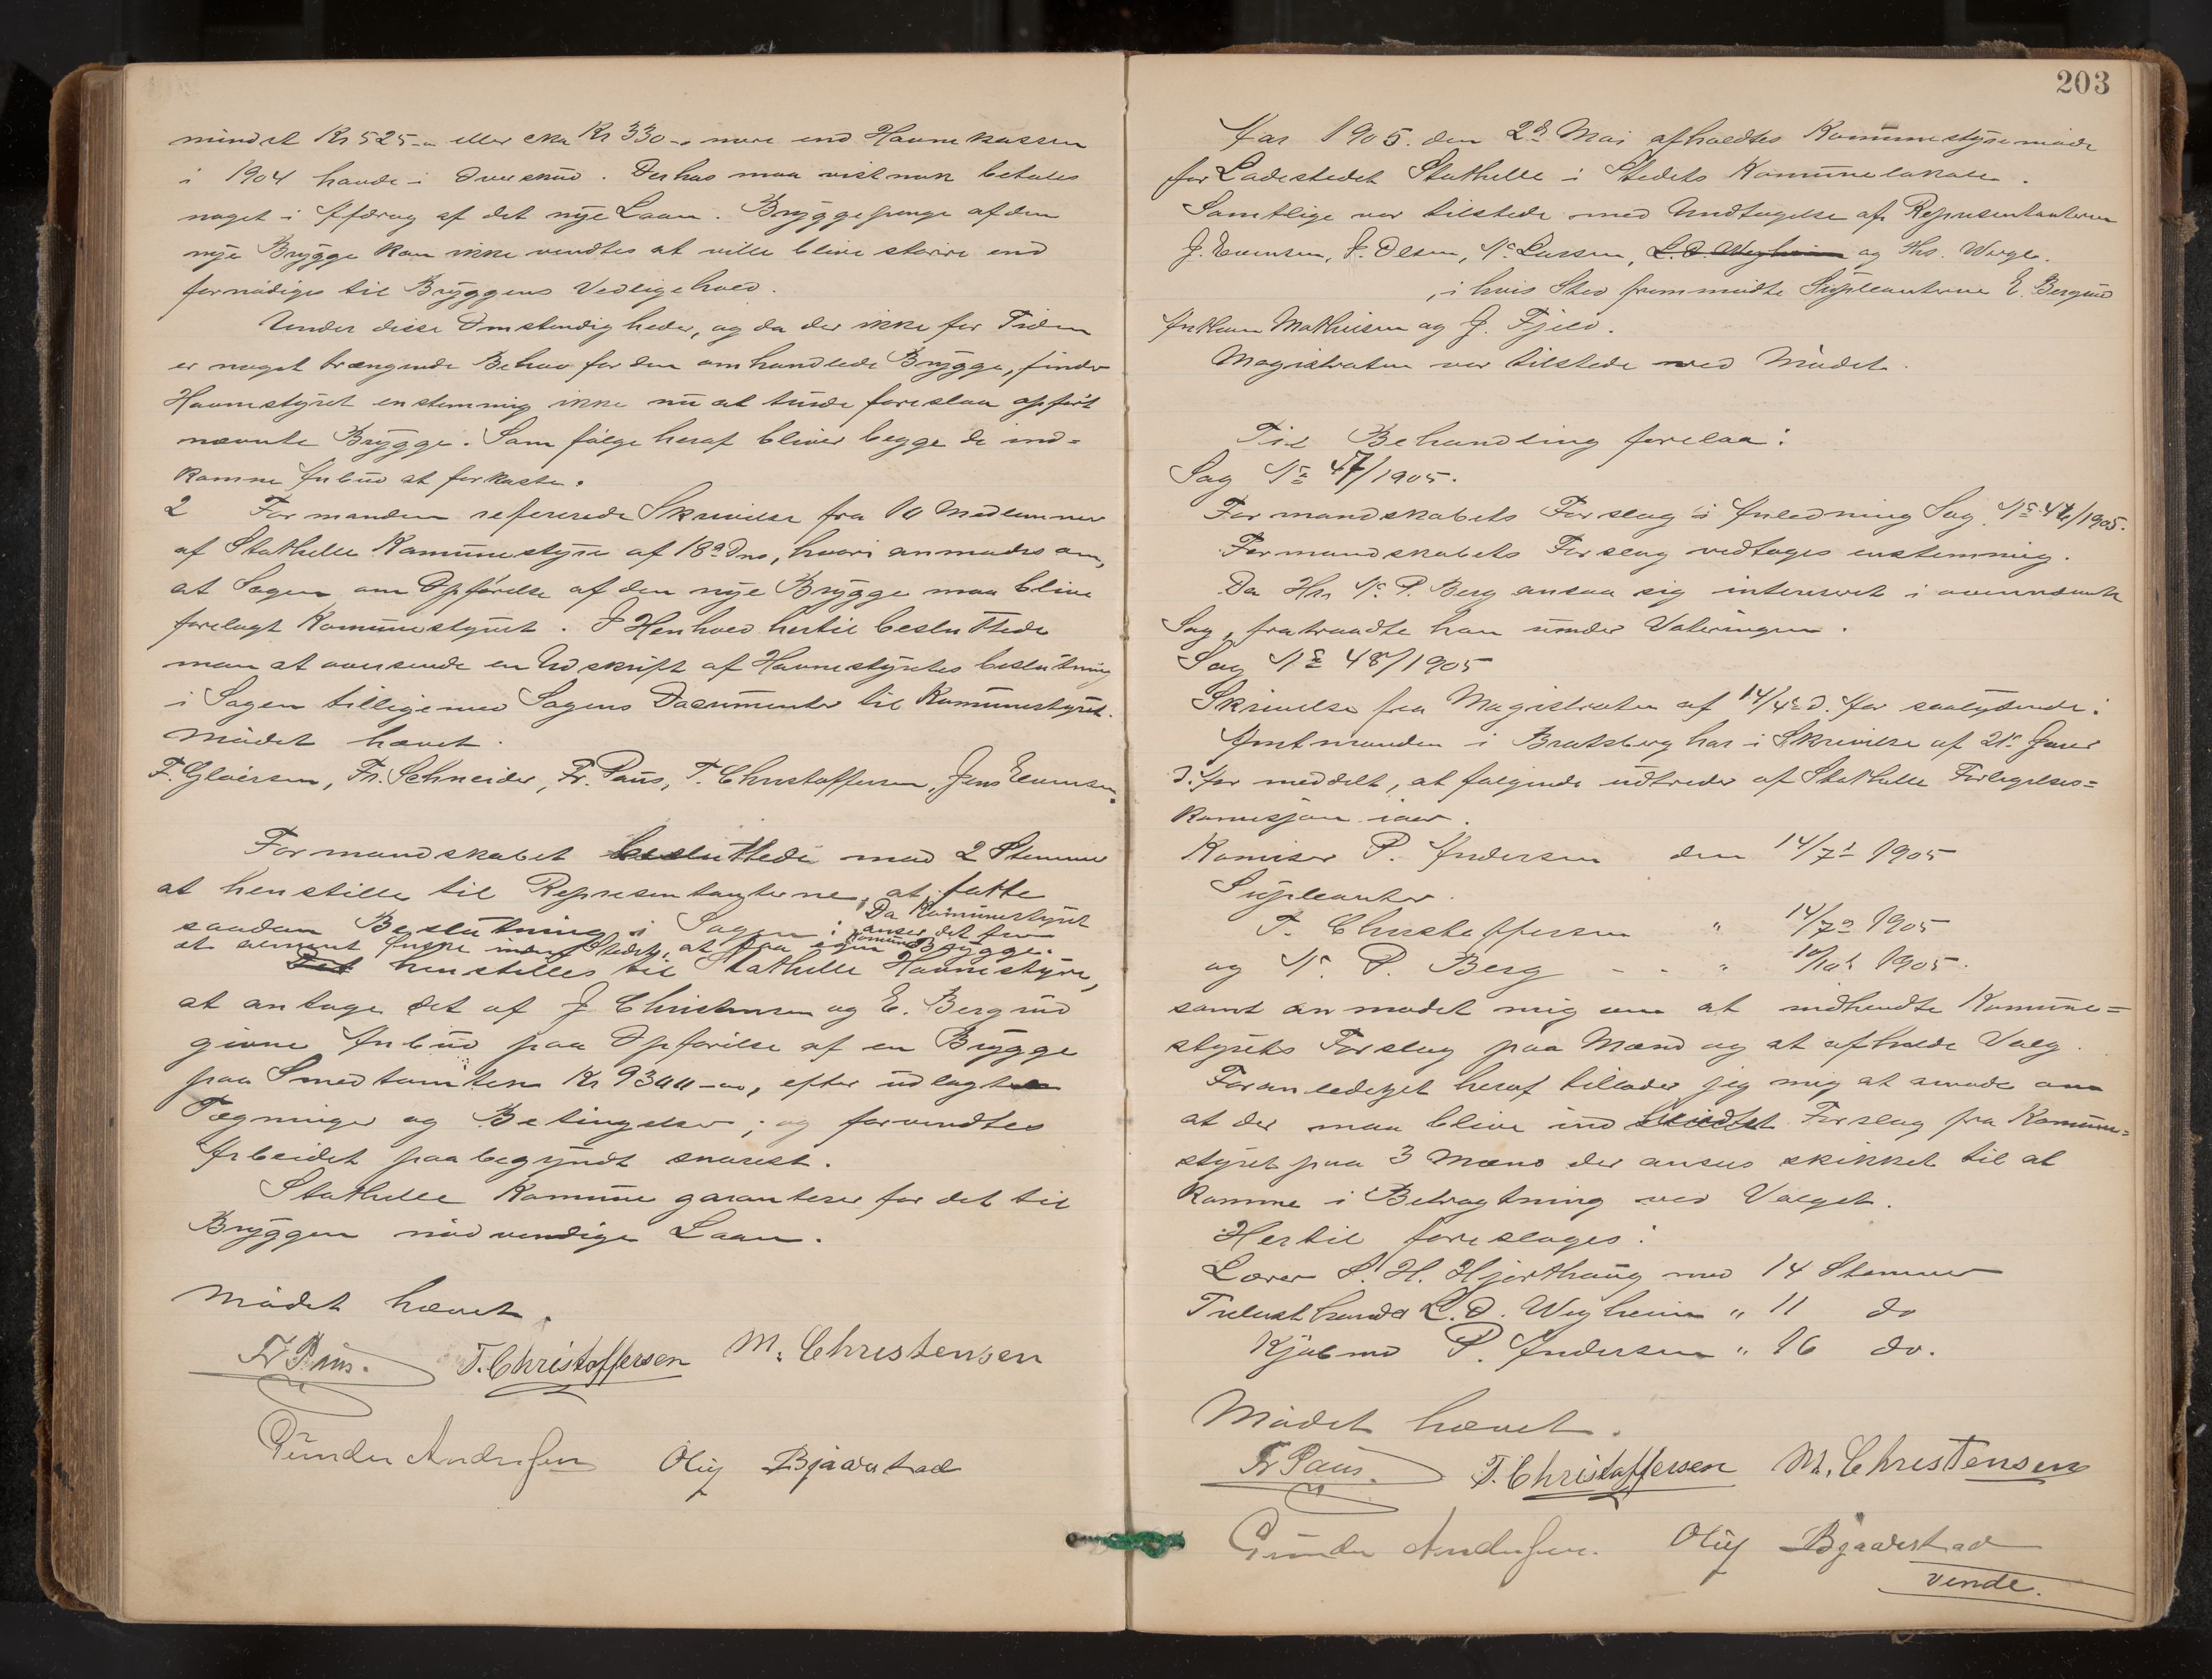 mindst Kr 525 – eller cka Kr 330 – mere end Havnekassen
i 1904 havde i Overskud. Derhos maa vistnok betales
noget i Afdrag af det nye Laan. Bryggepenge af den
nye Brygge kan ikke ventes at ville blive større end
fornødiges til Bryggens Vedligehold.
Under disse Omstendigheder, og da der ikke for Tiden
er noget trængende Behov for den omhandlede Brygge, finder
Havnestyret enstemmig ikke nu at turde foreslaa opført
nævnte Brygge. Som følge heraf bliver begge de ind=
komne Anbud at forkaste.
2 Formanden refererede Skrivelse fra 10 Medlemmer
af Stathelle Komunestyre af 18de Dns, hvori anmodes om,
at Sagen om Opførelse af den nye Brygge maa blive
forelagt Komunestyret. I Henhold hertil besluttede
man at oversende en Udskrift af Havnestyrets beslutning
i Sagen tilligemed Sagens Documenter til Komunestyret.
Mødet hævet.
F. Gløersen, Fr. Schneider, Fr. Paus, T. Christoffersen, Jens Evensen.
Formandskabet besluttede med 2 Stemmer
at henstille til Representanterne at fatte
saadan Beslutning i Sagen: Da Komunestyret
anser det for
at Stedet, at faa egen Komune Brygge.
Det henstilles til Stathelle Havnestyre,
at antage det af J Christensen og E. Bergrud
givne Anbud paa Opførelse af en Brygge
paa Smedtomten Kr 9300 –, efter udlagte
Tegninger og Betingelser; og forventes
Arbeidet paabegyndt snarest.
Stathelle Komune garanterer for det til
Bryggen nødvendige Laan.
Mødet hævet.
Fr Paus. T. Christoffersen M. Christensen
Gunder Andersen Oluf Bjaavatad
203
Aar 1905. den 2d Mai afholdtes Komunestyremøde
for Ladestedet Stathelle i Stedets Komunelokale.
Samtlige var tilstede med Undtagelse af Representanterne
J. Evensen, J. Olsen, N. Larsen, L. O. Wegheim og Ths. Werge.
, i hvis Sted fremmødte Supleanterne E. Bergrud
Mathisen og J. Fjeld.
Magistraten var tilstede ved Mødet.
Til Behandling forelaa:
Sag No 47/1905.
Formandskabets Forslag i Anledning Sag No 46/1905.
Formandskabets Forslag vedtages enstemmig.
Da Hr. N. P. Berg ansaa sig interesert i ovennævnte
Sag, fratraadte han under Voteringen.
Sag No 48/1905
Skrivelse fra Magistraten af 14/4 d. Aar saalydende:
Amtmanden i Bratsberg har i Skrivelse af 21. Januar
d. Aar meddelt, at følgende udtreder af Stathelle Forligelses=
komisjon iaar.
Komisær P. Andersen den 14/7 1905
Supleanter.
T. Christoffersen " 14/7 1905
og N. P. Berg – – " 10/10 1905.
samt anmodet mig om at indhente Komune=
styrets Forslag paa Mænd og at afholde Valg.
Foranlediget heraf tillader jeg mig at anmode om
at der maa blive indsendt Forslag fra Komune=
styret paa 3 Mænd der ansees skikket til at
komme i Betragtning ved Valget.
Hertil foreslages:
Lærer S. H. Hjorthaug med 14 Stemmer
Trelasthandler L. O. Wegheim " 11 do
Kjøbmd P. Andersen " 16 do.
Mødet hævet.
Fr Paus. T. Christoffersen M. Christensen
Gunder Andersen. Oluf Bjaavatad
vende.